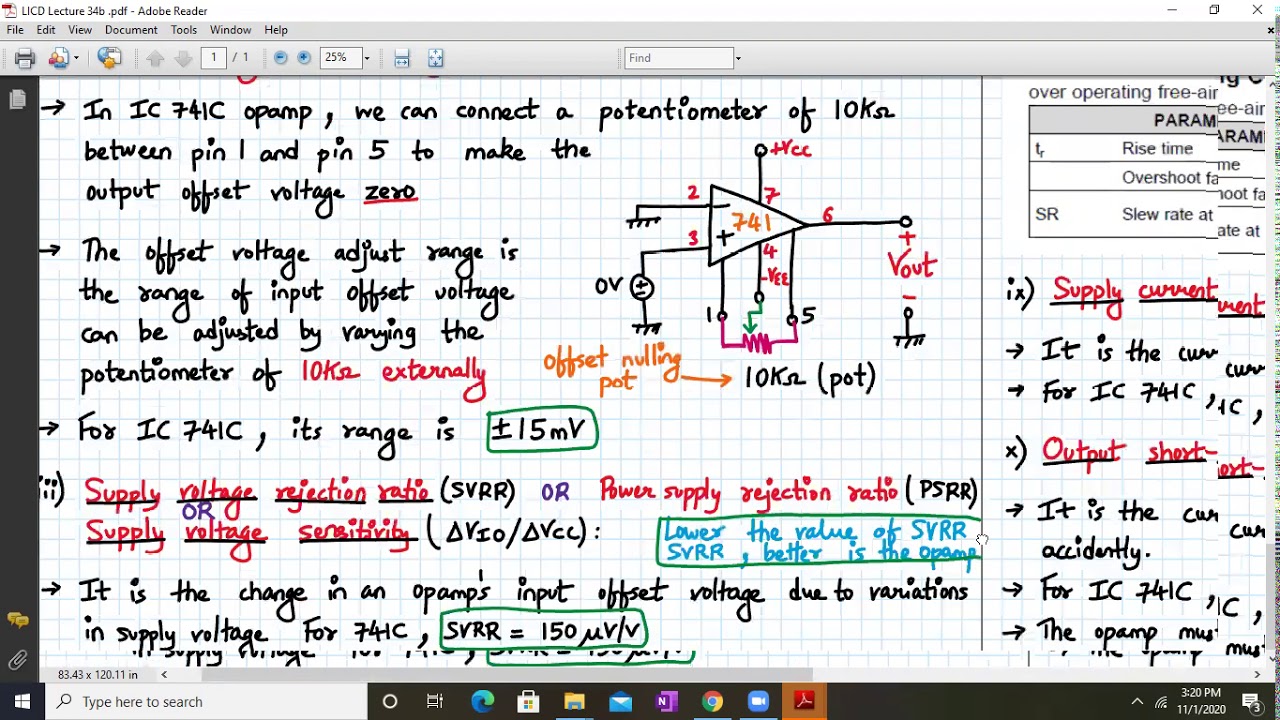 LICD Lecture 34b .pdf - Adobe Reader
File Edit View Document Tools Window Help
1 / 1 25% Find
→ In IC 741C opamp, we can connect a potentiometer of 10KΩ
between pin 1 and pin 5 to make the
output offset voltage zero
→ The offset voltage adjust range is
the range of input offset voltage
can be adjusted by varying the
potentiometer of 10KΩ externally
→ For IC 741C, its range is ±15mV
+Vcc
2
7
741
6
3
4
-VEE
0V
1
5
+
Vout
-
offset nulling
pot → 10KΩ (pot)
iii) Supply voltage rejection ratio (SVRR) OR Power supply rejection ratio (PSRR)
OR
Supply voltage sensitivity (ΔVIO/ΔVCC):
Lower the value of SVRR
SVRR, better is the opamp
→ It is the change in an opamp's input offset voltage due to variations
in supply voltage For 741C, SVRR = 150 μV/V
over operating free-air
PARAM
tr Rise time
Overshoot fa
SR Slew rate at
ix) Supply current
→ It is the curr
→ For IC 741C,
x) Output short-
→ It is the cur
accidently.
→ For IC 741C,
→ The opamp mus
83.43 x 120.11 in
Type here to search
3:20 PM
11/1/2020
3